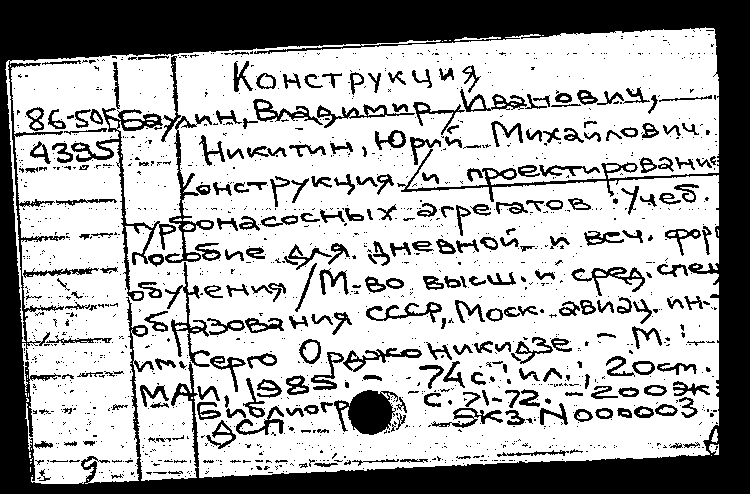 Конструкция
86-50к Баулин, Владимир Иванович,
4395 Никитин, Юрий Михайлович.
Конструкция и проектирование
турбонасосных агрегатов : Учеб.
пособие для дневной и веч. форм
обучения / М-во высш. и сред. спец
образования СССР, Моск. авиац. ин-т
им. Серго Орджоникидзе. - М. :
МАИ, 1985. - 74 с. : ил. ; 20 см.
Библиогр с. 71-72. - 200 экз
ДСП. Экз. N000003
д